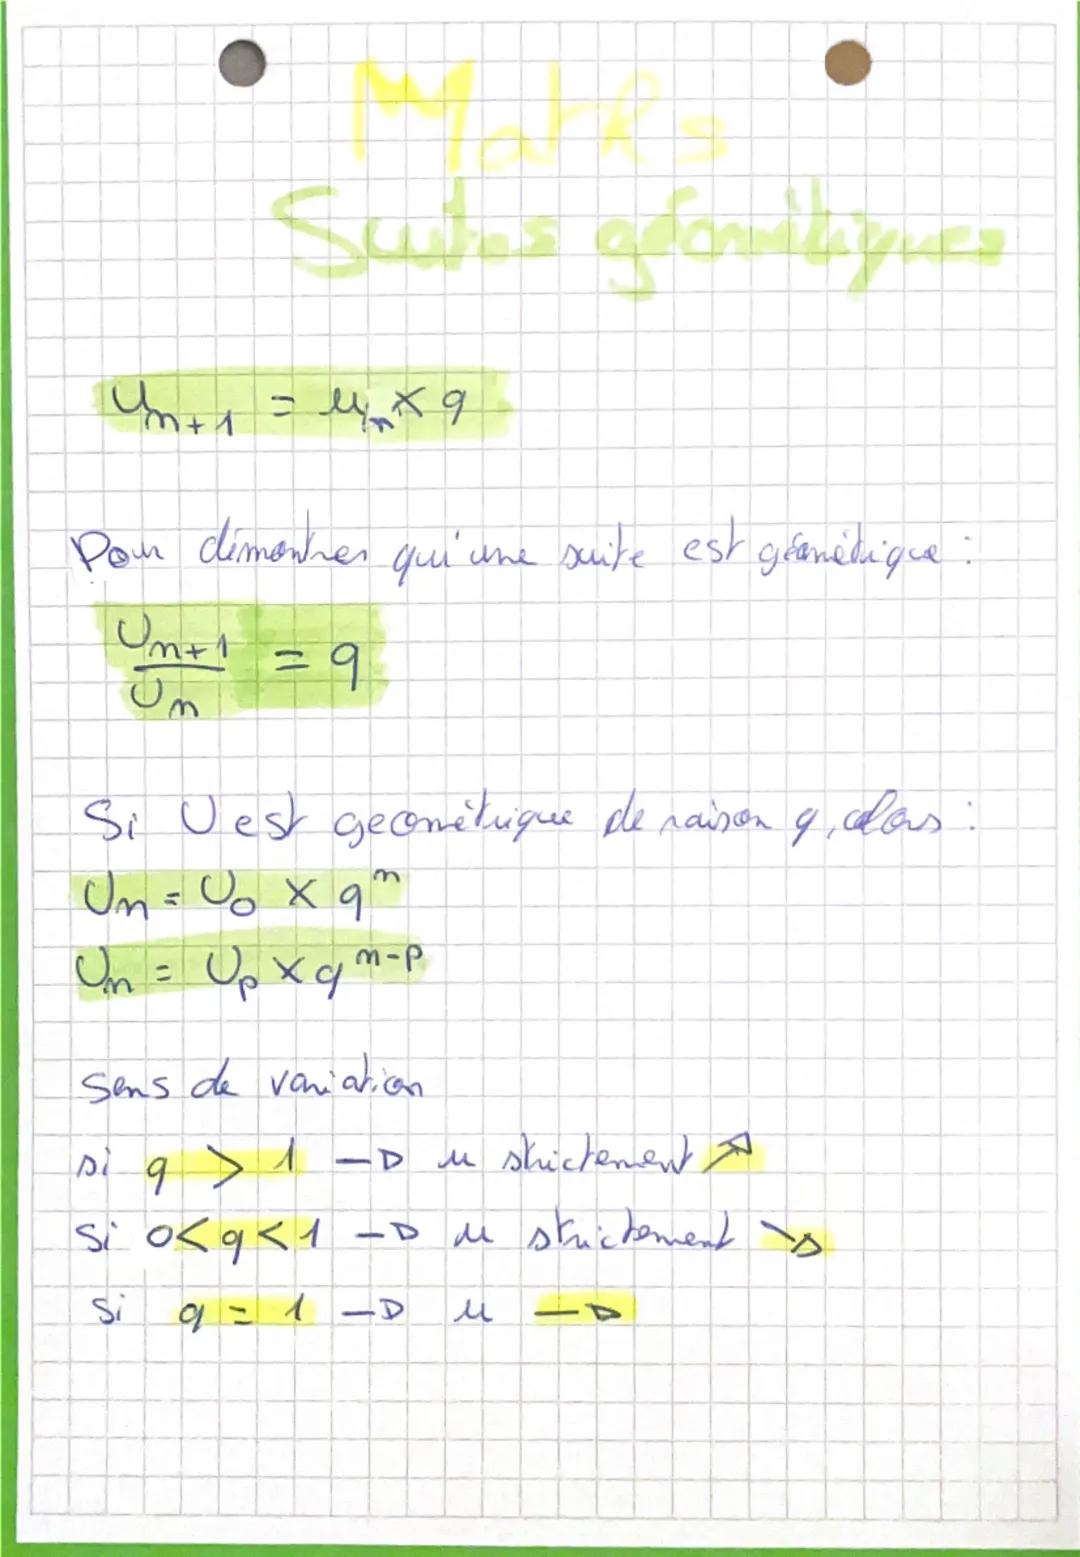 Maths
Suites géométriques
Un+1 = un × q
Pour démontrer qu'une suite est géométrique :
Un+1 / Un = q
Si U est geométrique de raison q, alors :
Un = U0 × q^n
Un = Up × q^n-p
Sens de variation
si q > 1 → u strictement ↗
si 0<q<1 → u strictement ↘
si q = 1 → u →